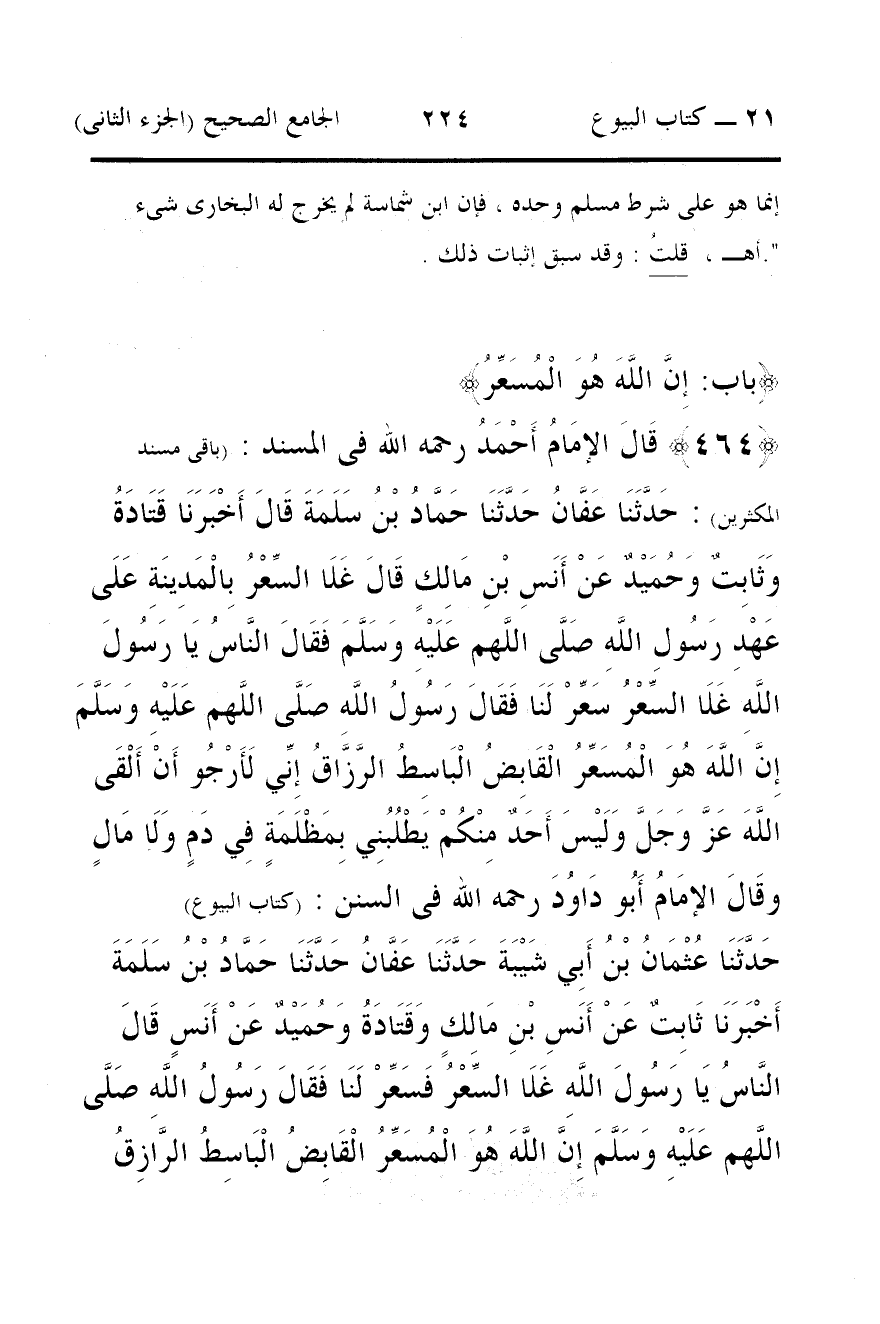 ٢١ ــ كتاب البيوع ٢٢٤ الجامع الصحيح (الجزء الثانى)
إنما هو على شرط مسلم وحده ، فإن ابن شماسة لم يخرج له البخارى شىء
".أهـــ ، قلتُ : وقد سبق إثبات ذلك .
﴿باب: إِنَّ اللَّهَ هُوَ الْمُسَعِّرُ﴾
﴿٤٦٤﴾ قَالَ الإِمَامُ أَحْمَدُ رحمه الله فى المسند : (باقى مسند
المكثرين) : حَدَّثَنَا عَفَّانُ حَدَّثَنَا حَمَّادُ بْنُ سَلَمَةَ قَالَ أَخْبَرَنَا قَتَادَةُ
وَثَابِتٌ وَحُمَيْدٌ عَنْ أَنَسِ بْنِ مَالِكٍ قَالَ غَلَا السِّعْرُ بِالْمَدِينَةِ عَلَى
عَهْدِ رَسُولِ اللَّهِ صَلَّى اللَّهم عَلَيْهِ وَسَلَّمَ فَقَالَ النَّاسُ يَا رَسُولَ
اللَّهِ غَلَا السِّعْرُ سَعِّرْ لَنَا فَقَالَ رَسُولُ اللَّهِ صَلَّى اللَّهم عَلَيْهِ وَسَلَّمَ
إِنَّ اللَّهَ هُوَ الْمُسَعِّرُ الْقَابِضُ الْبَاسِطُ الرَّزَّاقُ إِنِّي لَأَرْجُو أَنْ أَلْقَى
اللَّهَ عَزَّ وَجَلَّ وَلَيْسَ أَحَدٌ مِنْكُمْ يَطْلُبُنِي بِمَظْلَمَةٍ فِي دَمٍ وَلَا مَالٍ
وقَالَ الإِمَامُ أَبُو دَاوُدَ رحمه الله فى السنن : (كتاب البيوع)
حَدَّثَنَا عُثْمَانُ بْنُ أَبِي شَيْبَةَ حَدَّثَنَا عَفَّانُ حَدَّثَنَا حَمَّادُ بْنُ سَلَمَةَ
أَخْبَرَنَا ثَابِتٌ عَنْ أَنَسِ بْنِ مَالِكٍ وَقَتَادَةُ وَحُمَيْدٌ عَنْ أَنَسٍ قَالَ
النَّاسُ يَا رَسُولَ اللَّهِ غَلَا السِّعْرُ فَسَعِّرْ لَنَا فَقَالَ رَسُولُ اللَّهِ صَلَّى
اللَّهم عَلَيْهِ وَسَلَّمَ إِنَّ اللَّهَ هُوَ الْمُسَعِّرُ الْقَابِضُ الْبَاسِطُ الرَّازِقُ